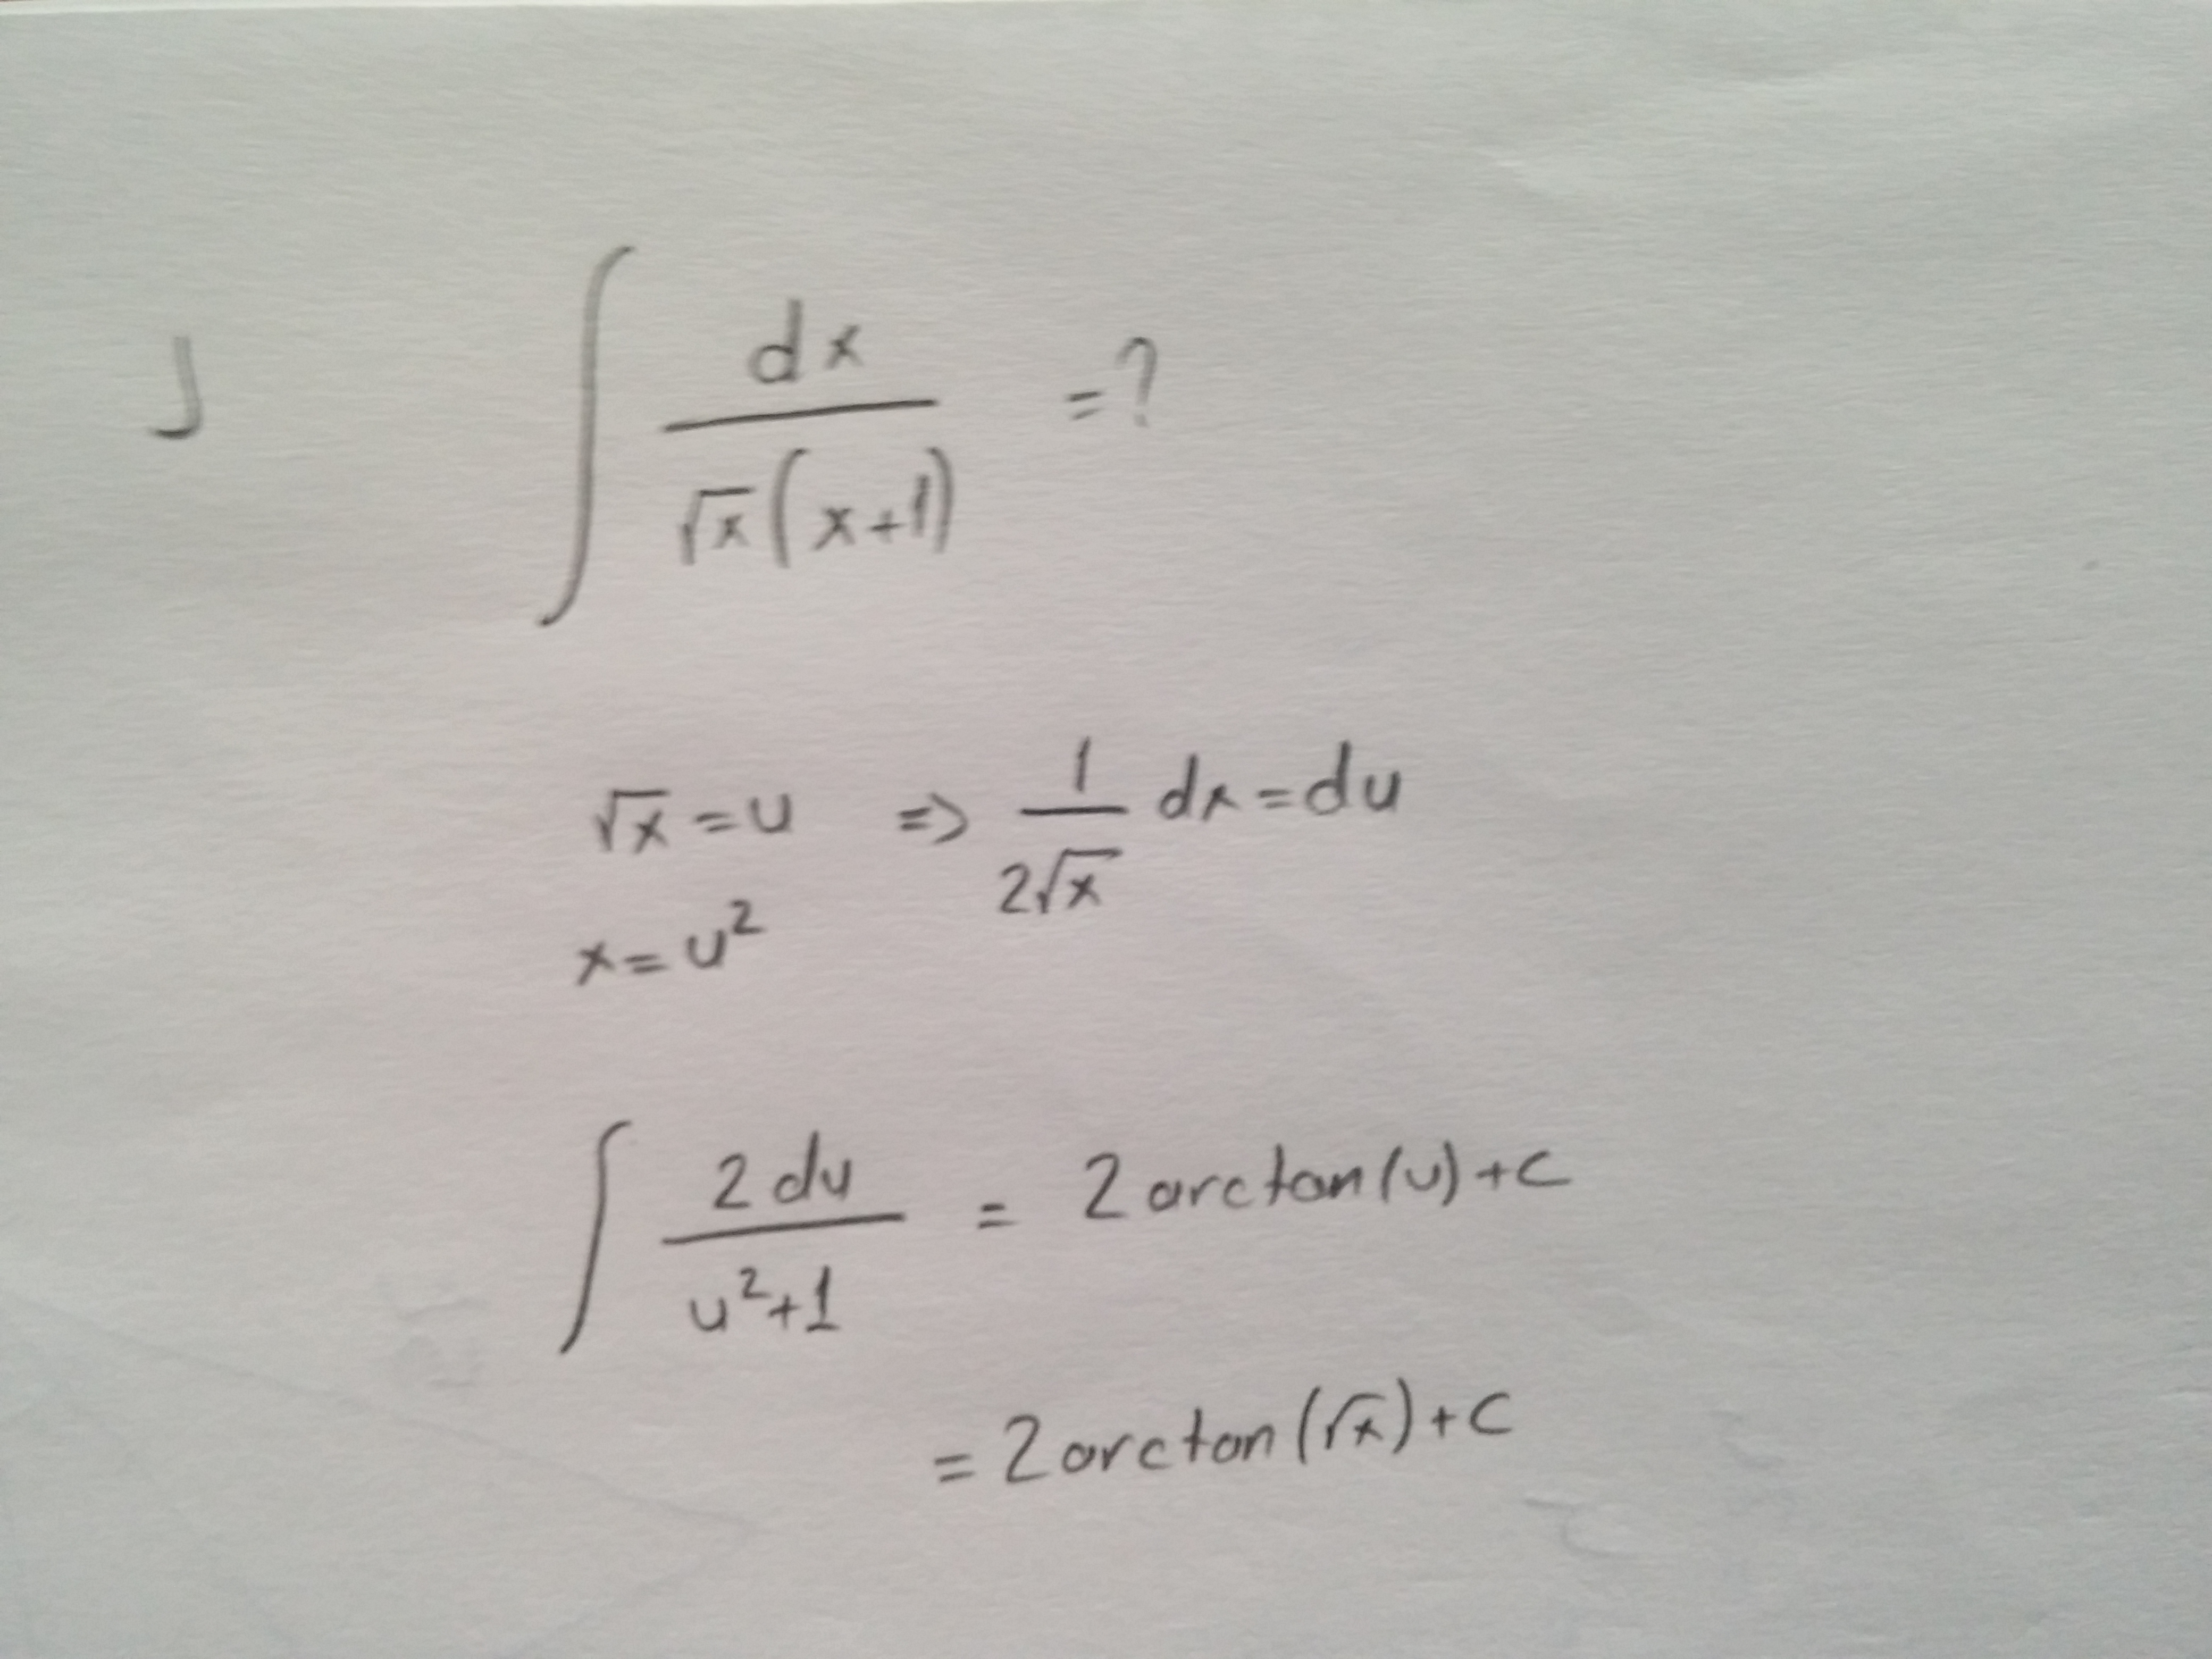 ∫ dx / √x (x+1) = ?
√x = u => 1 / 2√x dx = du
x = u²
∫ 2 du / u²+1 = 2 arctan(u) + c
= 2 arctan(√x) + c